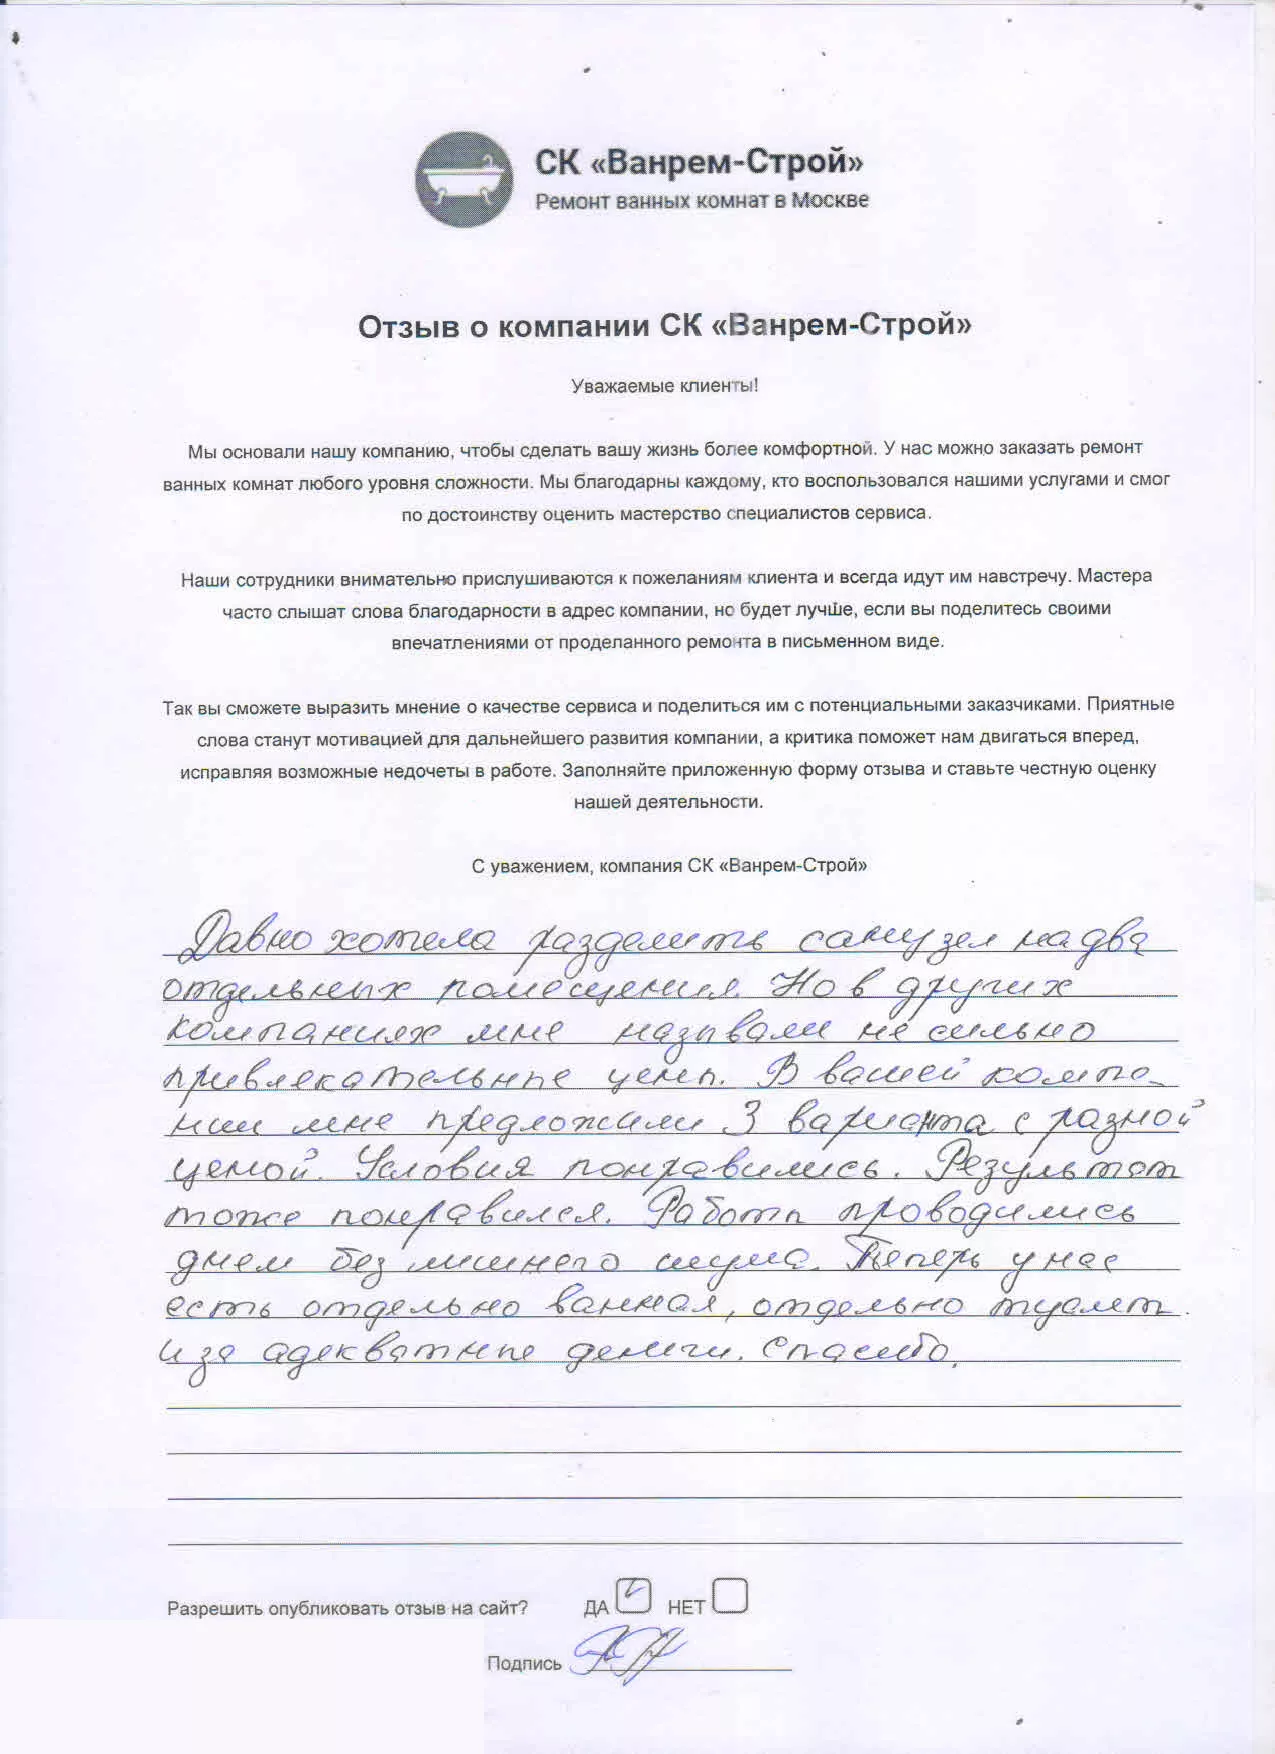 СК «Ванрем-Строй»
Ремонт ванных комнат в Москве
Отзыв о компании СК «Ванрем-Строй»
Уважаемые клиенты!
Мы основали нашу компанию, чтобы сделать вашу жизнь более комфортной. У нас можно заказать ремонт
ванных комнат любого уровня сложности. Мы благодарны каждому, кто воспользовался нашими услугами и смог
по достоинству оценить мастерство специалистов сервиса.
Наши сотрудники внимательно прислушиваются к пожеланиям клиента и всегда идут им навстречу. Мастера
часто слышат слова благодарности в адрес компании, но будет лучше, если вы поделитесь своими
впечатлениями от проделанного ремонта в письменном виде.
Так вы сможете выразить мнение о качестве сервиса и поделиться им с потенциальными заказчиками. Приятные
слова станут мотивацией для дальнейшего развития компании, а критика поможет нам двигаться вперед,
исправляя возможные недочеты в работе. Заполняйте приложенную форму отзыва и ставьте честную оценку
нашей деятельности.
С уважением, компания СК «Ванрем-Строй»
Давно хотела разделить санузел на два
отдельных помещения. Но в других
компаниях мне называли не сильно
привлекательные цены. В вашей компа-
нии мне предложили 3 варианта с разной
ценой. Условия понравились. Результат
тоже понравился. Работы проводились
днем без лишнего шума. Теперь у нас
есть отдельно ванная, отдельно туалет.
И за адекватные деньги. Спасибо.
Разрешить опубликовать отзыв на сайт? ДА НЕТ
Подпись